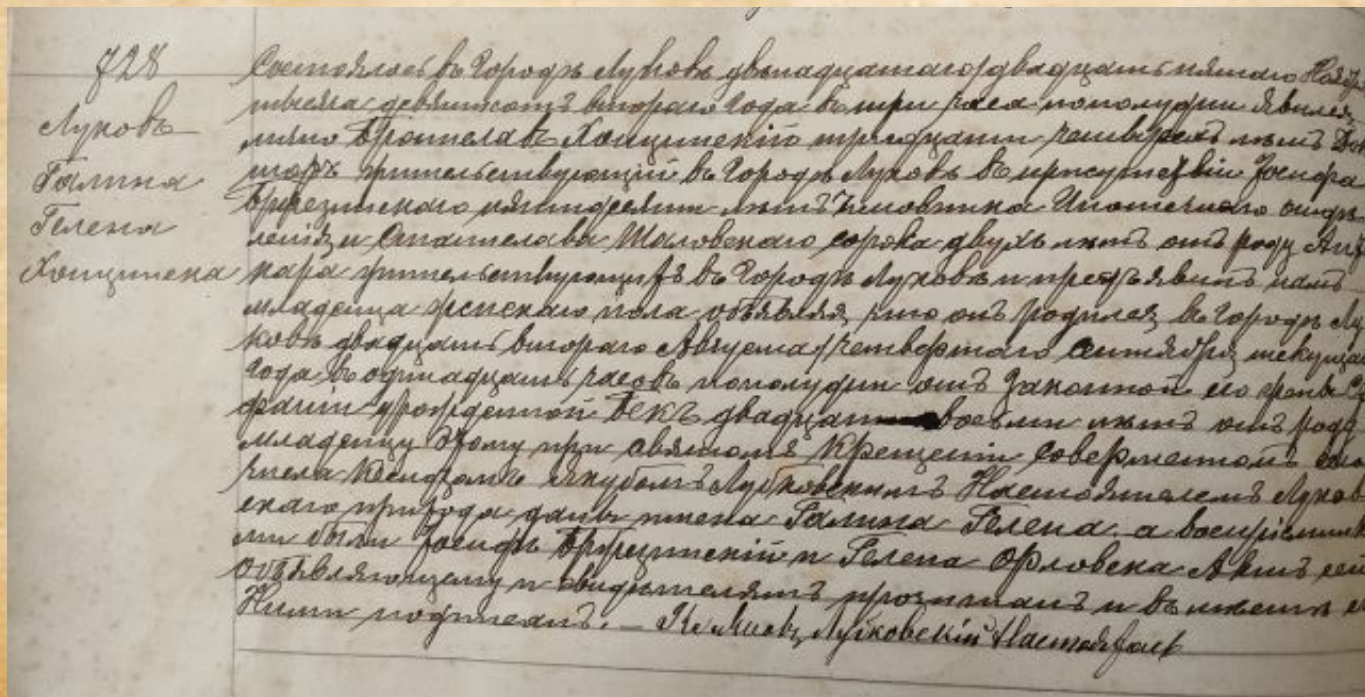 728
Луковъ
Галина
Гелена
Хонцинска
Состоялось въ Городѣ Луковѣ двѣнадцатаго/двадцать пятаго
тысяча девятьсотъ втораго года въ три часа пополудни явился
лично Бронислав Хонцинскій тридцати четырехъ лѣтъ
жительствующій въ Городѣ Луковѣ въ присутствіи Іосифа
Бржезинскаго пятидесяти лѣтъ Чиновника Ипотечнаго отдѣ
ленія и Станислава Шаловскаго сорока двухъ лѣтъ отъ роду
каря жительствующихъ въ Городѣ Луковѣ и предъявилъ намъ
младенца женскаго пола объявляя, что онъ родился въ Городѣ Лу
ковѣ двадцать втораго Августа/четвертаго сентября текущаго
года въ одинадцать часовъ пополудни отъ законной его жены
фаніи урожденной Бекъ двадцати восьми лѣтъ отъ роду
младенцу этому при святомъ Крещеніи совершенномъ сего
числа Ксендзомъ Якубомъ Лубковскимъ Настоятелемъ Луков
скаго прихода даны имена Галина Гелена а воспріемника
ми были Іосифъ Бржезинскій и Гелена Орловска Актъ сей
объявляющему и свидѣтелямъ прочитанъ и въ мѣстѣ съ
Ними подписанъ. —